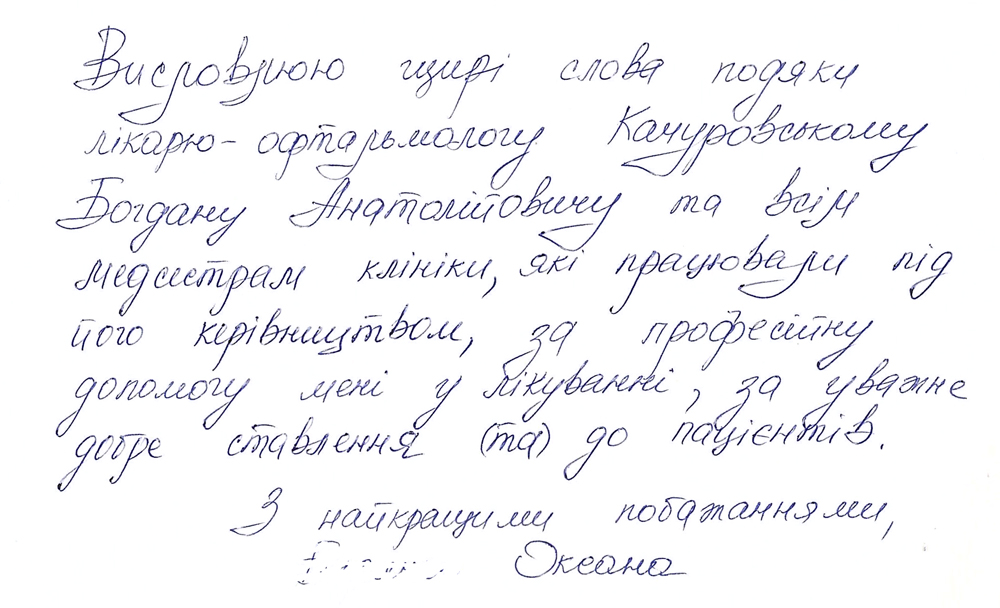 Висловлюю щирі слова подяки
лікарю-офтальмологу Качуровському
Богдану Анатолійовичу та всім
медсестрам клініки, які працювали під
його керівництвом, за професійну
допомогу мені у лікуванні, за уважне
добре ставлення (та) до пацієнтів.
З найкращими побажаннями,
Оксана